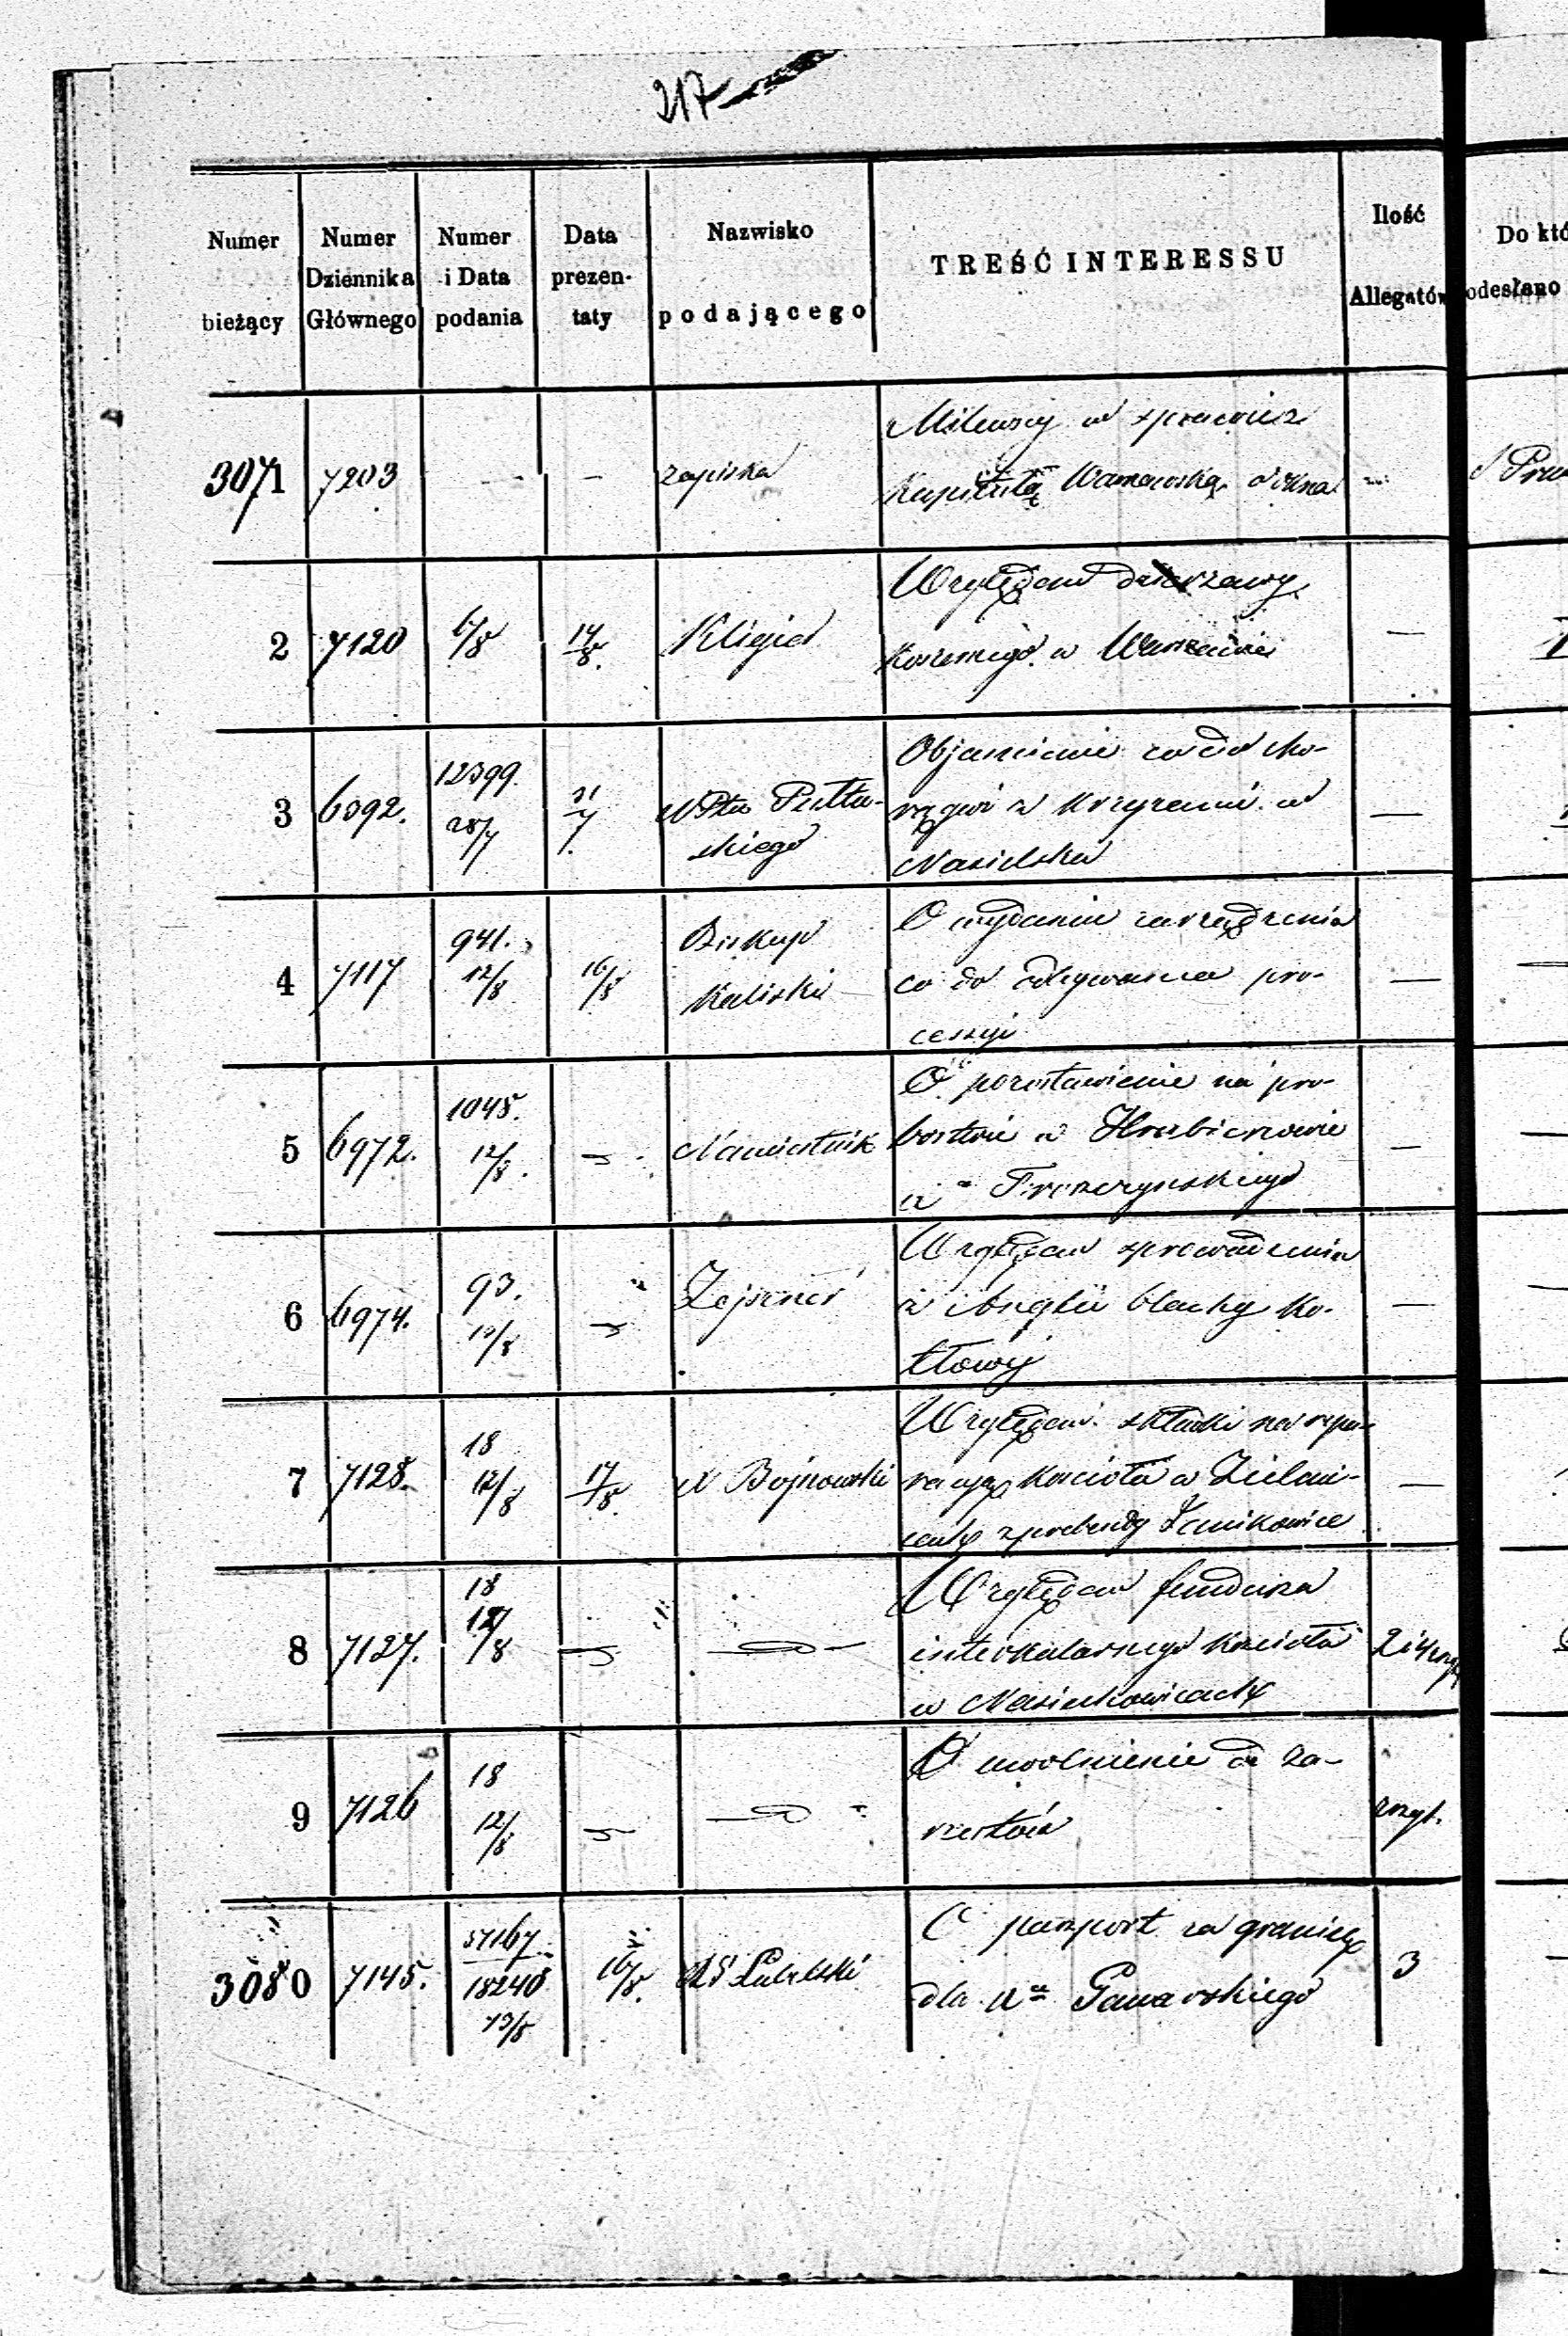 217
Numer bieżący | Numer Dziennika Głównego | Numer i Data podania | Data prezentaty | Nazwisko podającego | TREŚĆ INTERESSU | Ilość Allegatów | Do któ odesłano
3071 | 7203 | - | - | zapiska | Milewscy w sprawie z
Kapitułą Warszawską o okna
2 | 7120 | 6/8 | 14/8. | Kligie | Względem dzierzawy
w Warszawie | —
3 | 6392. | 12399 28/7 | 31/7. | N Ptu Pułtu-
skiego | Objaśnienie co do cho-
rągwi z krzyżami w
Nasielsku | —
4 | 7117 | 941. 12/8 | 16/8 | Biskup
Kaliski | O wydanie zarządzenia
co do odbywania pro-
cessyi | —
5 | 6972. | 1045. 12/8. | Namiestnik | O pozostawienie na pro-
bostwie w Hrubieszowie
x Trozczyńskiego | —
6 | 6974. | 93. 10/8 | Zejszner | Względem sprowadzenia
z Anglii blachy ko-
tłowej | —
7 | 7128. | 18 12/8 | 17/8. | X Bojnowski | Względem składki na repa-
racyą kościoła w Zieleni-
cach z prebendy Łanikowice | —
8 | 7127. | 18 12/8 | Względem funduszu
interkalarnego kościoła
w Nasiechowicach | 2 i 4
9 | 7126 | 18 12/8 | O uwolnienie od za-
rzutów | zszyt.
3080 | 7145. | 57167 18240 13/8 | 16/8. | Lubelski | O paszport za granicę
dla Xa Gawarskiego | 3